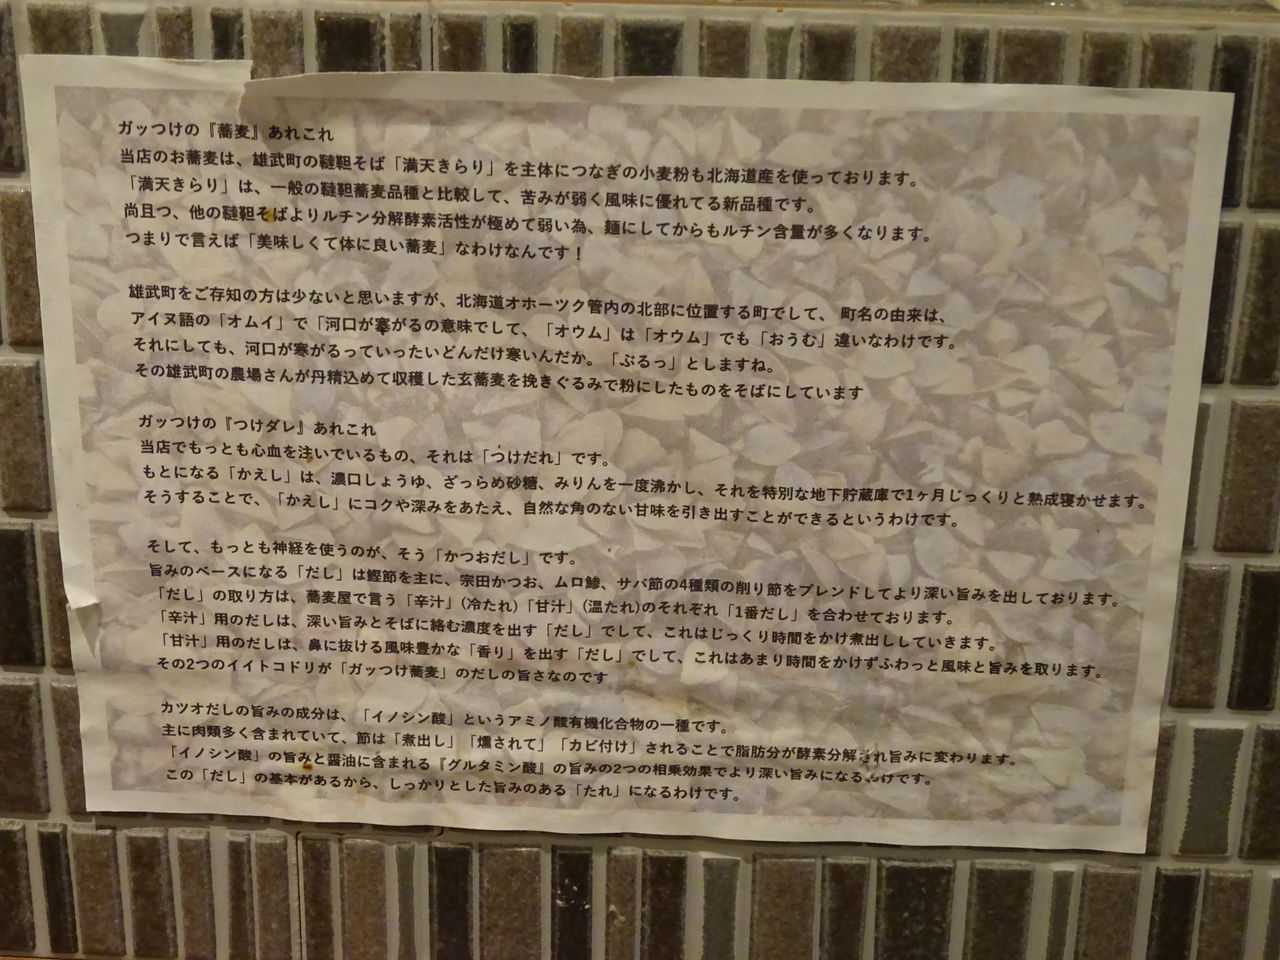 ガッつけの『蕎麦』あれこれ
当店のお蕎麦は、雄武町の韃靼そば「満天きらり」を主体につなぎの小麦粉も北海道産を使っております。
「満天きらり」は、一般の韃靼蕎麦品種と比較して、苦みが弱く風味に優れてる新品種です。
尚且つ、他の韃靼そばよりルチン分解酵素活性が極めて弱い為、麺にしてからもルチン含量が多くなります。
つまりで言えば「美味しくて体に良い蕎麦」なわけなんです！
雄武町をご存知の方は少ないと思いますが、北海道オホーツク管内の北部に位置する町でして、 町名の由来は、
アイヌ語の「オムイ」で「河口が塞がるの意味でして、「オウム」は「オウム」でも「おうむ」違いなわけです。
それにしても、河口が寒がるっていったいどんだけ寒いんだか。「ぶるっ」としますね。
その雄武町の農場さんが丹精込めて収穫した玄蕎麦を挽きぐるみで粉にしたものをそばにしています
ガッつけの『つけダレ』あれこれ
当店でもっとも心血を注いでいるもの、それは「つけだれ」です。
もとになる「かえし」は、濃口しょうゆ、ざっらめ砂糖、みりんを一度沸かし、それを特別な地下貯蔵庫で1ヶ月じっくりと熟成寝かせます。
そうすることで、「かえし」にコクや深みをあたえ、自然な角のない甘味を引き出すことができるというわけです。
そして、もっとも神経を使うのが、そう「かつおだし」です。
旨みのベースになる「だし」は鰹節を主に、宗田かつお、ムロ鯵、サバ節の4種類の削り節をブレンドしてより深い旨みを出しております。
「だし」の取り方は、蕎麦屋で言う「辛汁」(冷たれ)「甘汁」(温たれ)のそれぞれ「1番だし」を合わせております。
「辛汁」用のだしは、深い旨みとそばに絡む濃度を出す「だし」でして、これはじっくり時間をかけ煮出ししていきます。
「甘汁」用のだしは、鼻に抜ける風味豊かな「香り」を出す「だし」でして、これはあまり時間をかけずふわっと風味と旨みを取ります。
その2つのイイトコドリが「ガッつけ蕎麦」のだしの旨さなのです
カツオだしの旨みの成分は、「イノシン酸」というアミノ酸有機化合物の一種です。
主に肉類多く含まれていて、節は「煮出し」「燻されて」「カビ付け」されることで脂肪分が酵素分解され旨みに変わります。
「イノシン酸」の旨みと醤油に含まれる『グルタミン酸』の旨みの2つの相乗効果でより深い旨みになるわけです。
この「だし」の基本があるから、しっかりとした旨みのある「たれ」になるわけです。